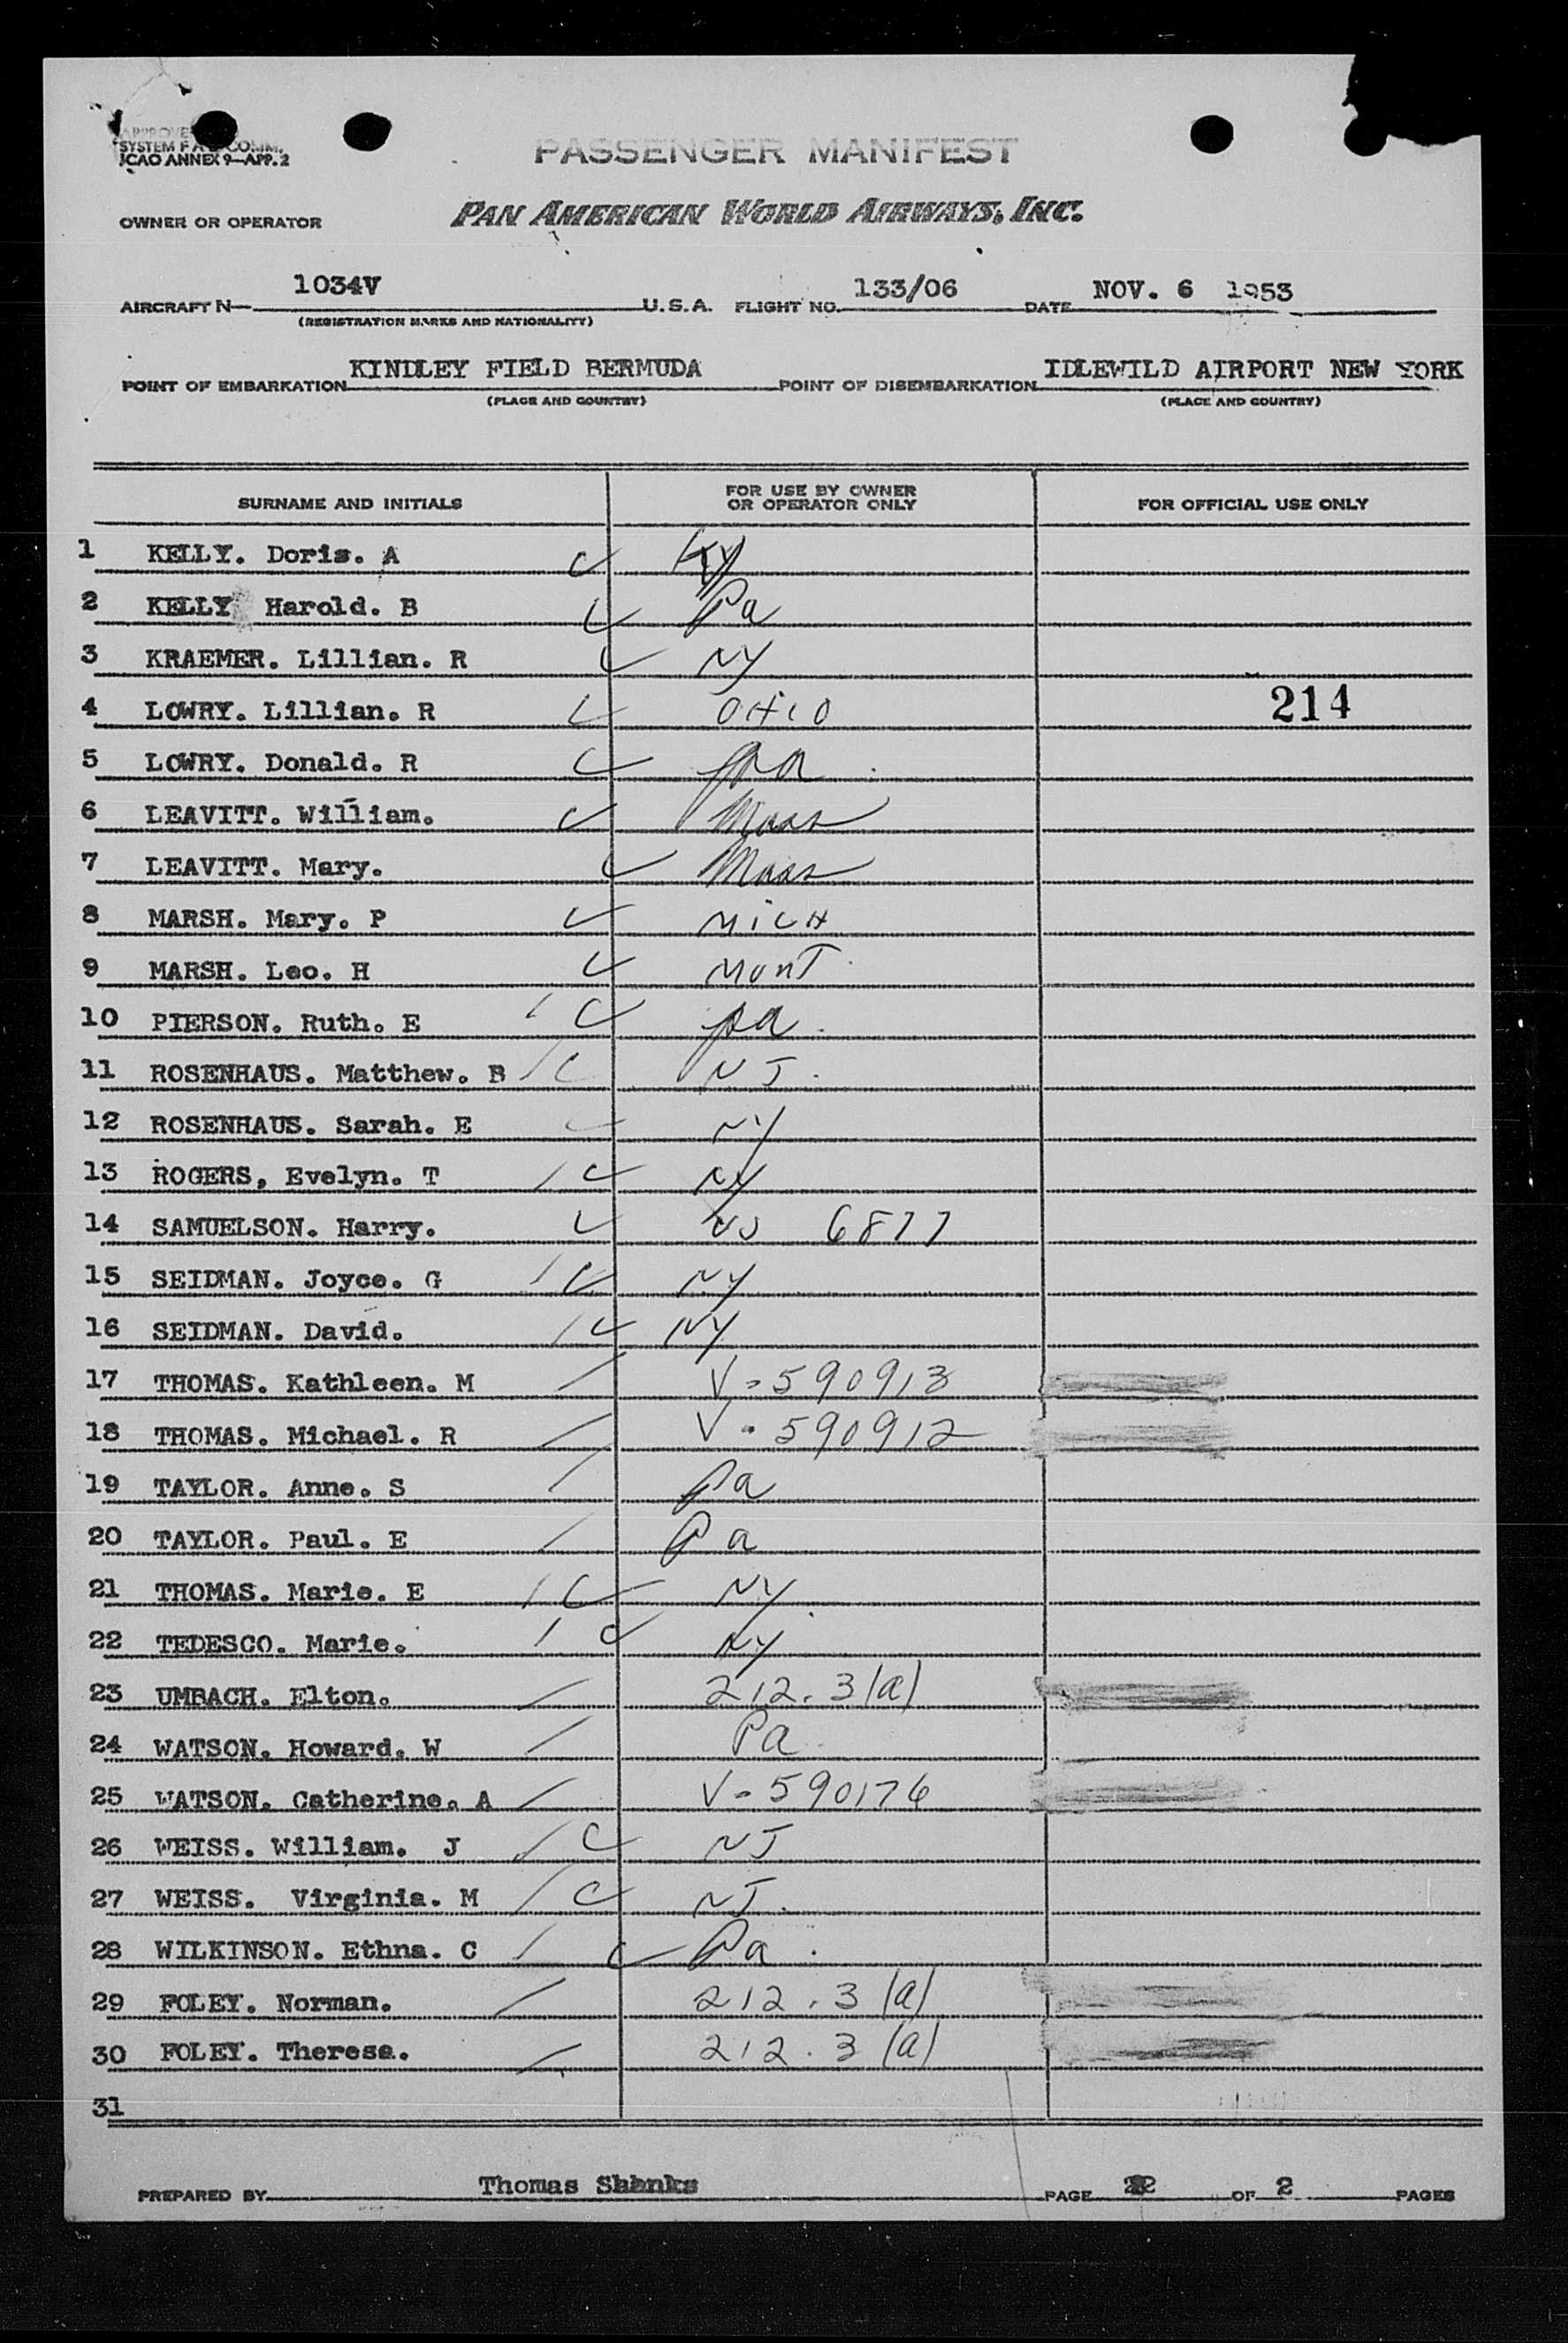 APPROVE
SYSTEM F A COMM.
ICAO ANNEX 9—APP. 2
PASSENGER MANIFEST
OWNER OR OPERATOR PAN AMERICAN WORLD AIRWAYS, INC.
AIRCRAFT N— 1034V U.S.A. FLIGHT NO. 133/06 DATE NOV. 6 1953
(REGISTRATION MARKS AND NATIONALITY)
POINT OF EMBARKATION KINDLEY FIELD BERMUDA POINT OF DISEMBARKATION IDLEWILD AIRPORT NEW YORK
(PLACE AND COUNTRY) (PLACE AND COUNTRY)
SURNAME AND INITIALS FOR USE BY OWNER OR OPERATOR ONLY FOR OFFICIAL USE ONLY
1 KELLY. Doris. A Ky
2 KELLY Harold. B Pa
3 KRAEMER. Lillian. R NY
4 LOWRY. Lillian. R OHIO 214
5 LOWRY. Donald. R pa
6 LEAVITT. William. Mass
7 LEAVITT. Mary. Mass
8 MARSH. Mary. P MICH
9 MARSH. Leo. H MONT
10 PIERSON. Ruth. E pa.
11 ROSENHAUS. Matthew. B NJ.
12 ROSENHAUS. Sarah. E NY
13 ROGERS, Evelyn. T NY
14 SAMUELSON. Harry. 6877
15 SEIDMAN. Joyce. G NY
16 SEIDMAN. David. NY
17 THOMAS. Kathleen. M V-590913
18 THOMAS. Michael. R V-590912
19 TAYLOR. Anne. S Pa
20 TAYLOR. Paul. E Pa
21 THOMAS. Marie. E NY.
22 TEDESCO. Marie. NY
23 UMBACH. Elton. 212.3(a)
24 WATSON. Howard. W Pa
25 WATSON. Catherine. A V-590176
26 WEISS. William. J NJ
27 WEISS. Virginia. M NJ.
28 WILKINSON. Ethna. C Pa.
29 FOLEY. Norman. 212.3(a)
30 FOLEY. Theresa. 212.3(a)
31
PREPARED BY Thomas Shanks PAGE 2 OF 2 PAGES